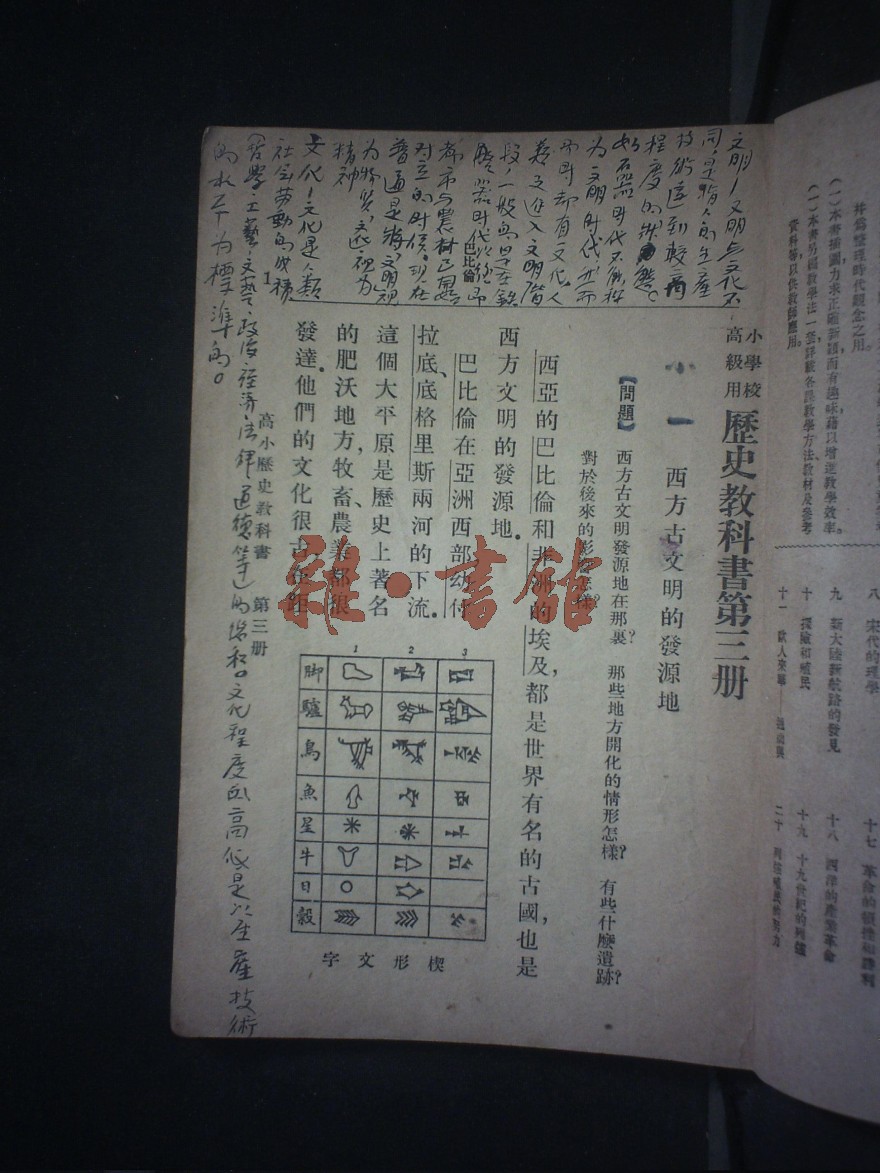 文明—文明与文化不
同，是指人的生產
技術達到較高
程度的狀態。
如石器时代不能称
为文明时代，然而
那时却有文化。人
类之进入文明階
段，一般的是在鉄
都市与農村已
对立的时候。现在
普通是将文明视
为物质，文化视为
精神
文化—文化是人類
社会劳動的成積
（哲學、工藝、文藝、政治、經济、法律、道德等）的总和。文化程度的高低是以生產技術
的水平为標準的。
巴比倫
小學校
高級用
歷史教科書第三册
一 西方古文明的發源地
【問題】 西方古文明發源地在那裏？ 那些地方開化的情形怎樣？ 有些什麽遺跡？
對於後來的影響怎樣？
西亞的巴比倫和非洲的埃及，都是世界有名的古國，也是
西方文明的發源地。
巴比倫在亞洲西部幼付
拉底、底格里斯兩河的下流。
這個大平原是歷史上著名
的肥沃地方，牧畜、農業都很
發達。他們的文化很古，在距
1 2 3
脚
驢
鳥
魚
星
牛
日
穀
楔形文字
高小歷史教科書 第三册
1
雜·書館
并爲整理時代觀念之用。
（一）本書插圖力求正確新穎而有趣味，藉以增進教學效率。
（一）本書另編教學法一套，詳載各課教學方法、教材及參考
資料等，以供教師應用。
八 宋代的理學
九 新大陸新航路的發見
十 探險和殖民
十一 歐人來華
十七 革命的犧牲和勝利
十八 西洋的產業革命
十九 十九世紀的列強
二十 列強殖民的努力